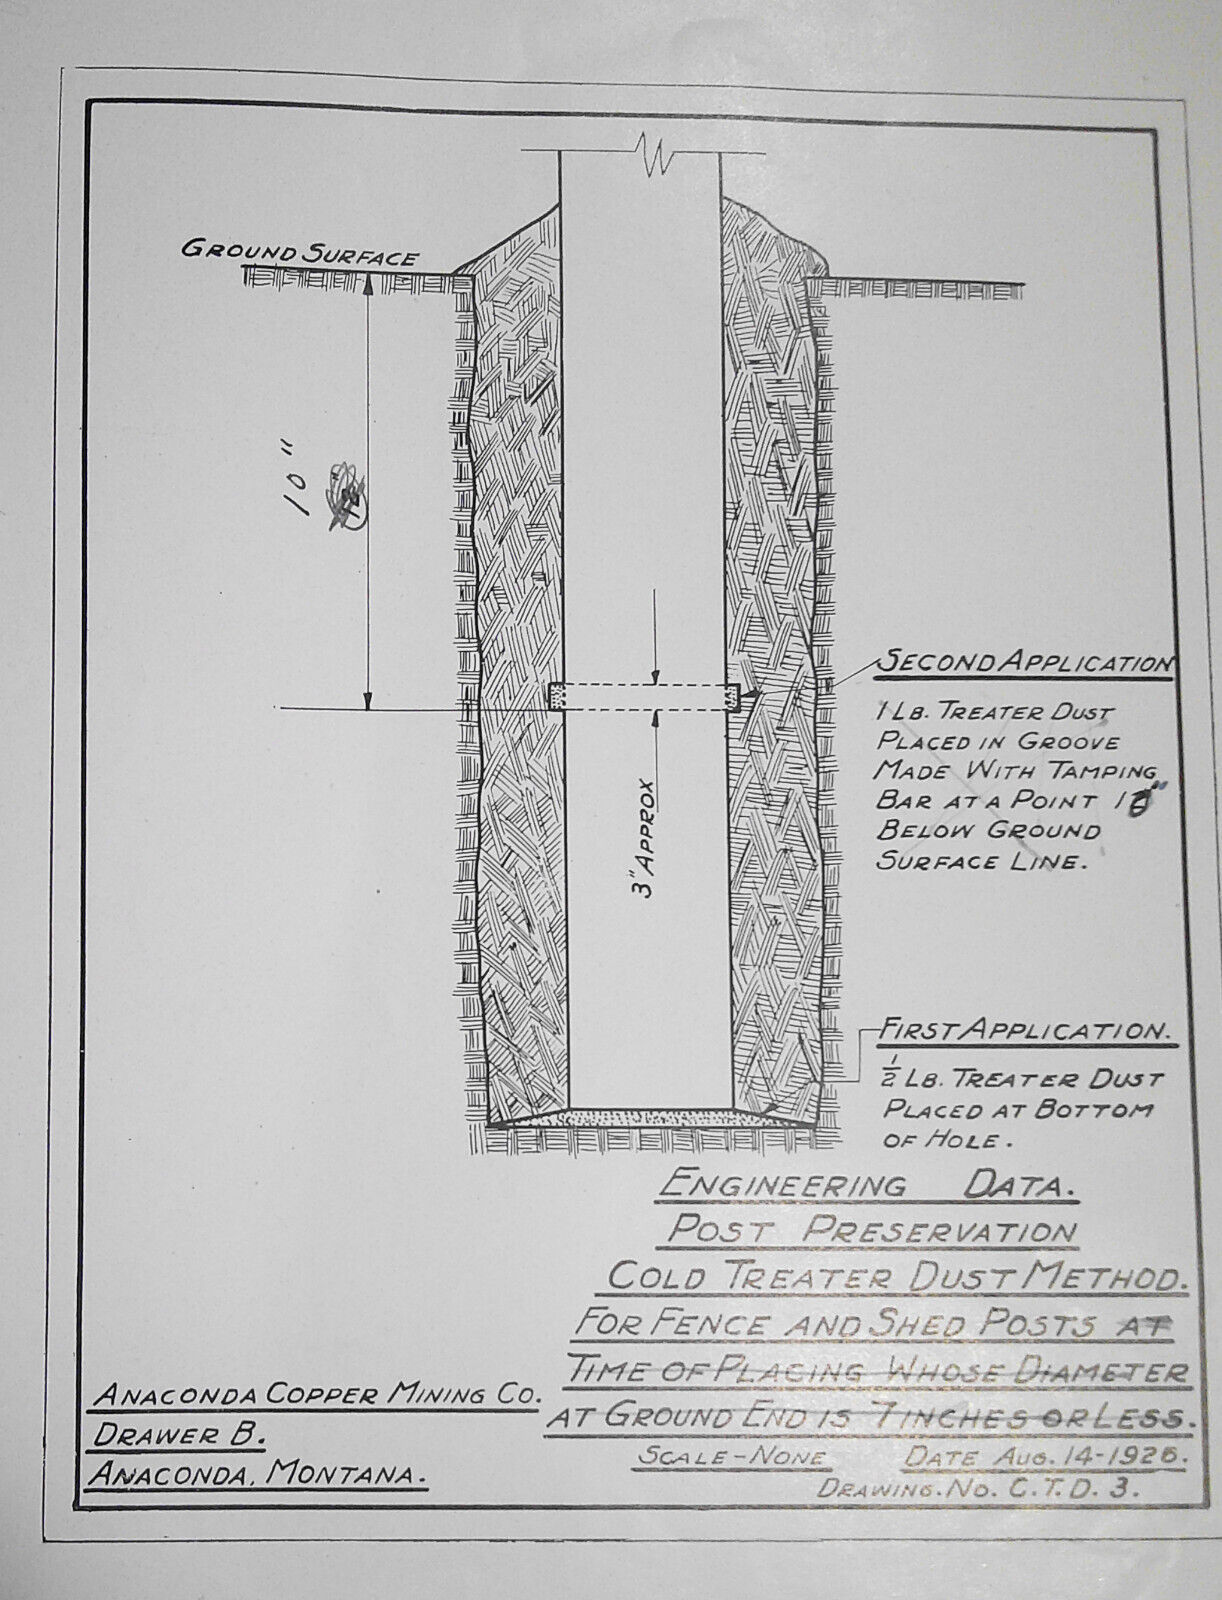 GROUND SURFACE
10"
SECOND APPLICATION
1 LB. TREATER DUST
PLACED IN GROOVE
MADE WITH TAMPING
BAR AT A POINT
BELOW GROUND
SURFACE LINE.
3" APPROX
FIRST APPLICATION.
1/2 LB. TREATER DUST
PLACED AT BOTTOM
OF HOLE.
ENGINEERING DATA.
POST PRESERVATION
COLD TREATER DUST METHOD.
FOR FENCE AND SHED POSTS AT
TIME OF PLACING WHOSE DIAMETER
AT GROUND END IS 7 INCHES OR LESS.
SCALE-NONE DATE AUG. 14-1926.
DRAWING. NO. C.T.D. 3.
ANACONDA COPPER MINING CO.
DRAWER B.
ANACONDA, MONTANA.